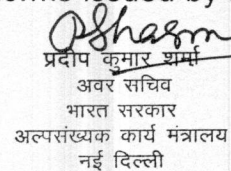 issued by
PSharm
प्रदीप कुमार शर्मा
अवर सचिव
भारत सरकार
अल्पसंख्यक कार्य मंत्रालय
नई दिल्ली